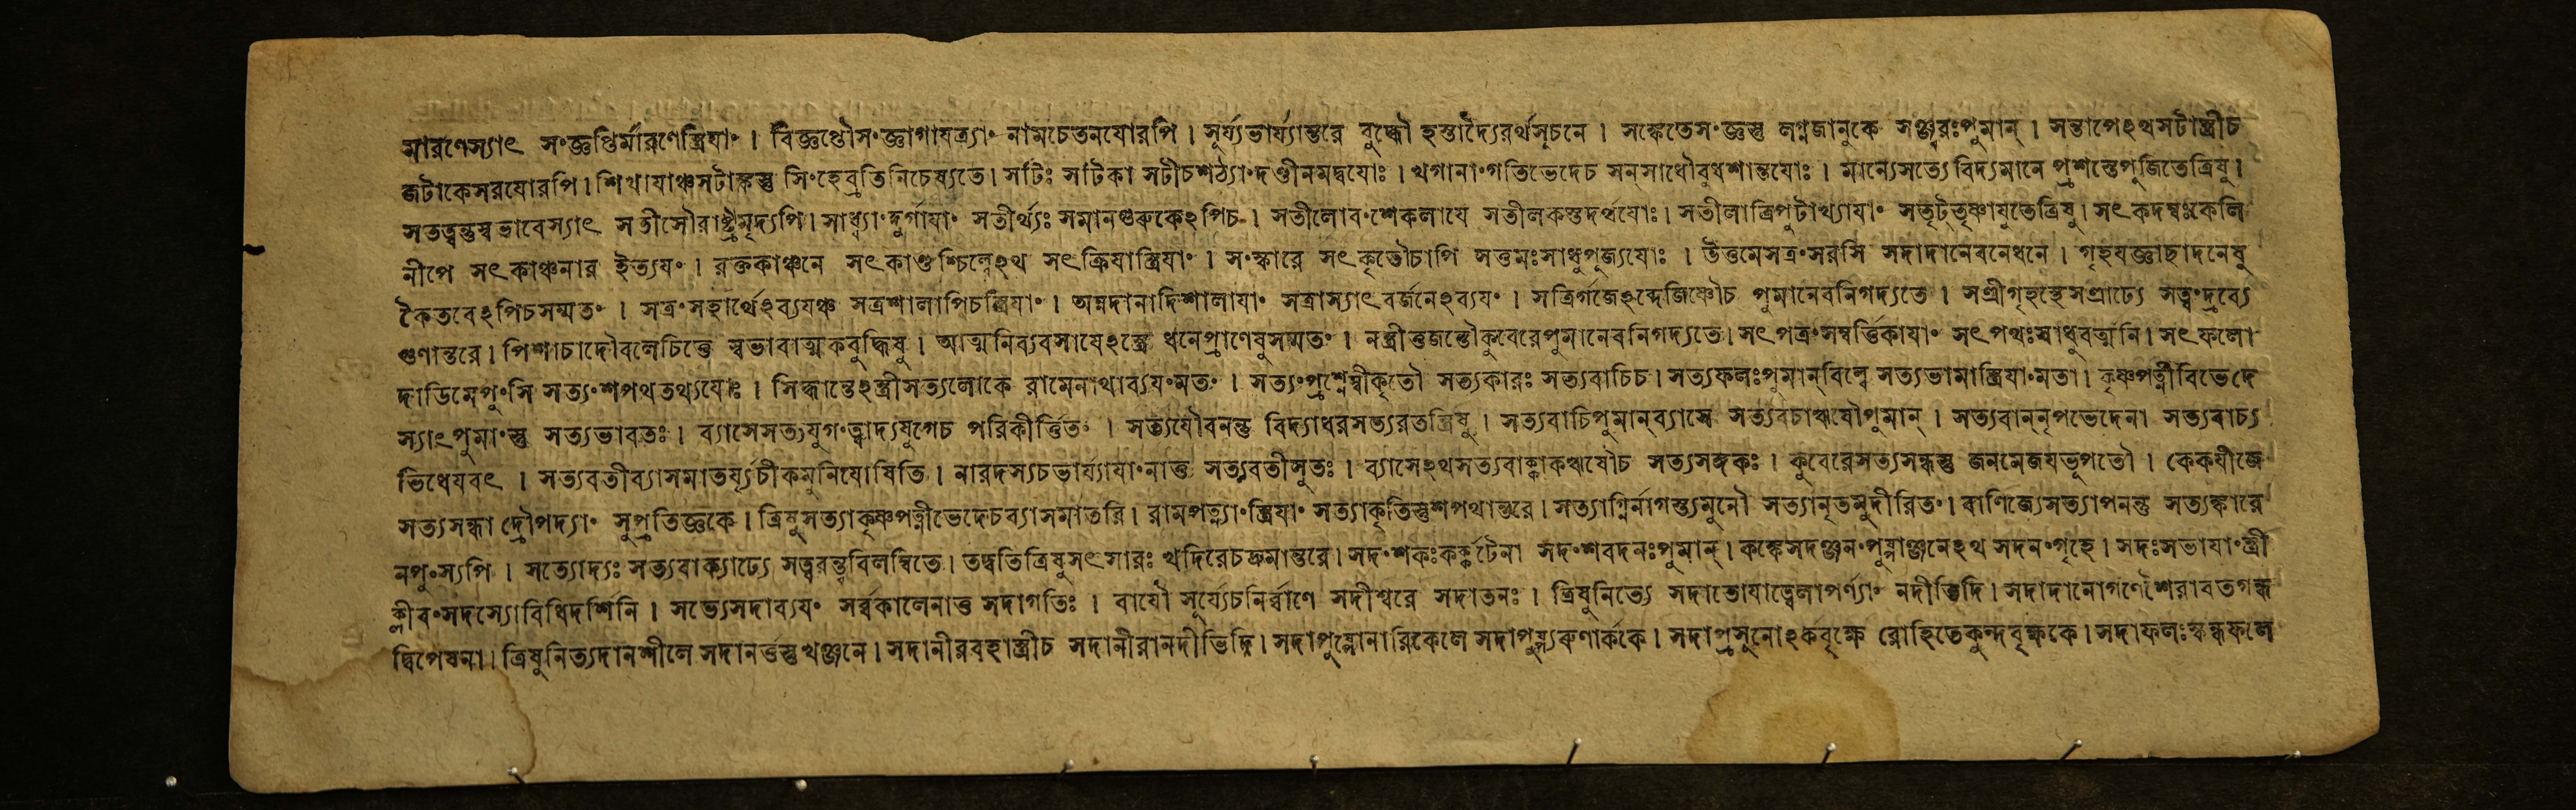 মারণেস্যাৎ সংজ্ঞপ্তির্মারণেস্ত্রিযাং । বিজ্ঞপ্তৌসংজ্ঞাগাযত্র্যাং নামচেতনযোরপি । সূর্য্যভার্য্যান্তরে বুদ্ধৌ হস্তাদ্যৈরর্থসূচনে । সঙ্কেতেসংজ্ঞস্তু লগ্নজানুকে সঞ্জ্বরঃপুমান্ । সন্তাপেঽথসটাস্ত্রীচ
জটাকেসরযোরপি । শিখাযাঞ্চসটাঙ্কস্তু সিংহেব্রতিনিচেষ্যতে । সটিঃ সটিকা সটীচশঠ্যাং দণ্ডীনমদ্বযোঃ । খগানাংগতিভেদেচ সন্সাধৌবুধশান্তযোঃ । মান্যেসত্যেবিদ্যমানে প্রশস্তেপূজিতেত্রিষু ।
সতত্ত্বন্তুস্বভাবেস্যাৎ সতীসৌরাষ্ট্রমৃদ্যপি । সাধ্ব্যাংদুর্গাযাং সতীর্থ্যঃ সমানগুরুকেঽপিচ । সতীলোবংশেকলাযে সতীলকস্তদর্থযোঃ । সতীলাত্রিপুটাখ্যাযাং সতৃট্তৃষ্ণাযুতেত্রিষু । সৎকদম্বঃকেলি
নীপে সৎকাঞ্চনার ইত্যযং । রক্তকাঞ্চনে সৎকাণ্ডশ্চিল্লেঽথ সৎক্রিযাস্ত্রিযাং । সংস্কারে সৎকৃতৌচাপি সত্তমঃসাধুপূজ্যযোঃ । উত্তমেসত্রংসরসি সদাদানেবনেধনে । গৃহযজ্ঞাছাদনেষু
কৈতবেঽপিচসম্মতং । সত্রংসহার্থেঽব্যযঞ্চ সত্রশালাপিচস্ত্রিযাং । অন্নদানাদিশালাযাং সত্রাস্যাৎবর্জনেঽব্যযং । সত্রির্গজেঽব্দেজিষ্ণৌচ পুমানেবনিগদ্যতে । সশ্রীগৃহস্থেসশ্রাঢ্যে সত্ত্বংদ্রব্যে
গুণান্তরে । পিশাচাদৌবলেচিত্তে স্বভাবাত্মকবুদ্ধিষু । আত্মনিব্যবসাযেঽস্ত্রে ধনেপ্রাণেষুসম্মতং । নস্ত্রীত্তজন্তৌকুবেরেপুমানেবনিগদ্যতে । সৎপত্রংসম্বর্ত্তিকাযাং সৎপথঃসাধুবর্ত্মনি । সৎফলো
দাডিমেপুংসি সত্যংশপথতথ্যযোঃ । সিদ্ধান্তেঽস্ত্রীসত্যলোকে রামেনাথাব্যযংমতং । সত্যংপ্রশ্নেস্বীকৃতৌ সত্যকারঃ সত্যবাচিচ । সত্যফলঃপুমান্বিল্বে সত্যভামাস্ত্রিযাংমতা । কৃষ্ণপত্নীবিভেদে
স্যাৎপুমাংস্তু সত্যভাবতঃ । ব্যাসেসত্যযুগংত্বাদ্যযুগেচ পরিকীর্ত্তিতং । সত্যযৌবনন্তু বিদ্যাধরসত্যরতস্ত্রিষু । সত্যবাচিপুমান্ব্যাসে সত্যবচাঋষৌপুমান্ । সত্যবান্নৃপভেদেনা সত্যবাচ্য
ভিধেযবৎ । সত্যবতীব্যাসমাতর্য্যৃচীকমুনিযোষিতি । নারদস্যচভার্য্যাযাংনাত্ত সত্যবতীসুতঃ । ব্যাসেঽথসত্যবাক্কাকঋষৌচ সত্যসঙ্গকঃ । কুবেরেসত্যসন্ধস্তু জনমেজযভূপতৌ । কেকযীজে
সত্যসন্ধা দ্রৌপদ্যাং সুপ্রতিজ্ঞকে । ত্রিষুসত্যাকৃষ্ণপত্নীভেদেচব্যাসমাতরি । রামপত্ন্যাংস্ত্রিযাং সত্যাকৃতিস্তুশপথান্তরে । সত্যাগ্নির্নাগস্ত্যমুনৌ সত্যানৃতমুদীরিতং । বাণিজ্যেসত্যাপনন্তু সত্যঙ্কারে
নপুংস্যপি । সত্যোদ্যঃ সত্যবাক্যাঢ্যে সত্বরন্ত্ববিলম্বিতে । তদ্বতিত্রিষুসৎসারঃ খদিরেচদ্রুমান্তরে । সদংশকঃকর্কটেনা সদংশবদনঃপুমান্ । কঙ্কেসদঞ্জনংপুষ্পাঞ্জনেঽথ সদনংগৃহে । সদঃসভাযাংস্ত্রী
ক্লীবংসদস্যোবিধিদর্শিনি । সভ্যেসদাব্যযং সর্ব্বকালেনাত্ত সদাগতিঃ । বাযৌ সূর্য্যেচনির্ব্বাণে সদীশ্বরে সদাতনঃ । ত্রিষুনিত্যে সদাতোযাত্বেলাপর্ণ্যাং নদীভিদি । সদাদানোগণেশৈরাবতগন্ধ
দ্বিপেষনা । ত্রিষুনিত্যদানশীলে সদানর্ত্তস্তুখঞ্জনে । সদানীরবহাস্ত্রীচ সদানীরানদীভিদি । সদাপুষ্পোনারিকেলে সদাপুষ্প্যরুণার্ককে । সদাপ্রসূনোঽর্কবৃক্ষে রোহিতেকুন্দবৃক্ষকে । সদাফলঃস্কন্ধফলে